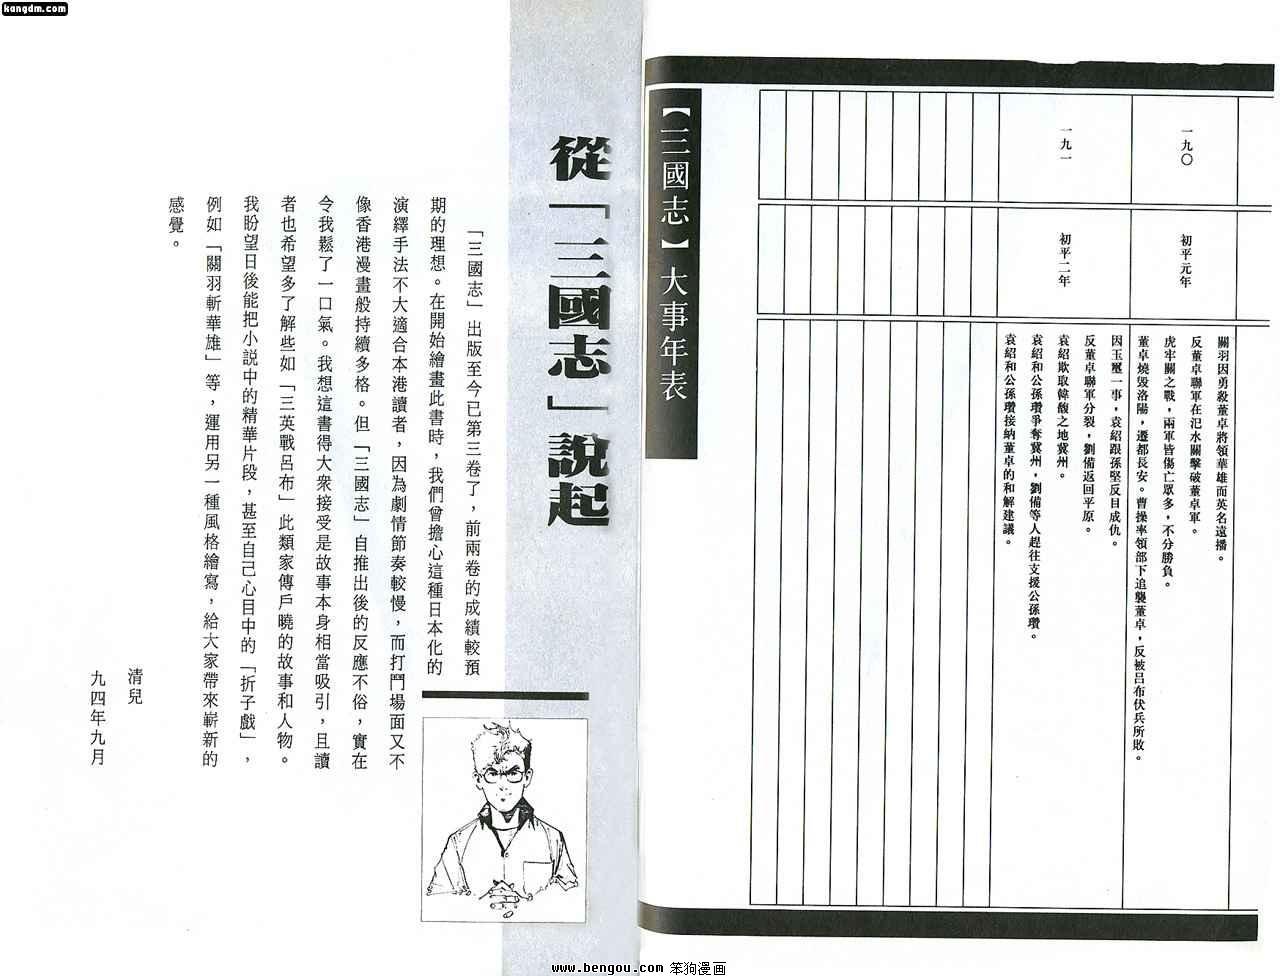 kangdm.com
【三國志】大事年表
一九〇
初平元年
關羽因勇殺董卓將領華雄而英名遠播。
反董卓聯軍在汜水關擊破董卓軍。
虎牢關之戰，兩軍皆傷亡眾多，不分勝負。
董卓燒毀洛陽，遷都長安。曹操率領部下追襲董卓，反被呂布伏兵所敗。
一九一
初平二年
因玉璽一事，袁紹跟孫堅反目成仇。
反董卓聯軍分裂，劉備返回平原。
袁紹欺取韓馥之地冀州。
袁紹和公孫瓚爭奪冀州，劉備等人趕往支援公孫瓚。
袁紹和公孫瓚接納董卓的和解建議。
從「三國志」說起
「三國志」出版至今已第三卷了，前兩卷的成績較預
期的理想。在開始繪畫此書時，我們曾擔心這種日本化的
演繹手法不大適合本港讀者，因為劇情節奏較慢，而打鬥場面又不
像香港漫畫般持續多格。但「三國志」自推出後的反應不俗，實在
令我鬆了一口氣。我想這書得大衆接受是故事本身相當吸引，且讀
者也希望多了解些如「三英戰呂布」此類家傳戶曉的故事和人物。
我盼望日後能把小説中的精華片段，甚至自己心目中的「折子戲」，
例如「關羽斬華雄」等，運用另一種風格繪寫，給大家帶來嶄新的
感覺。
清兒
九四年九月
www.bengou.com 笨狗漫画